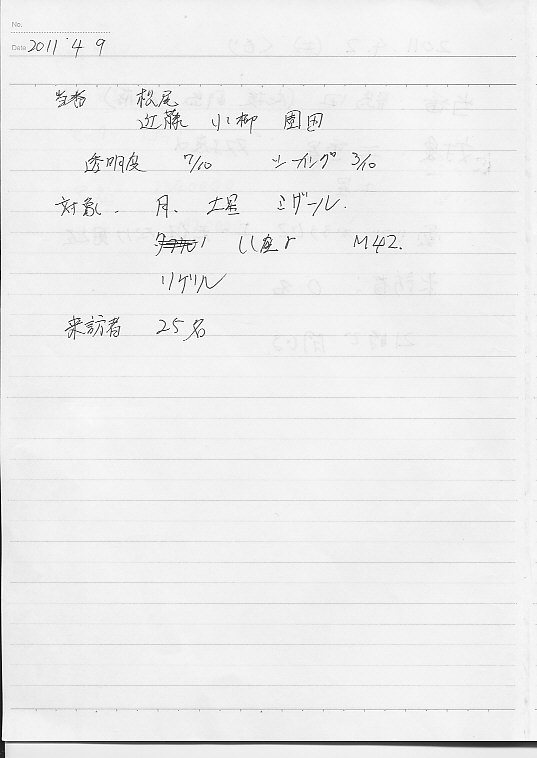 No.
Date 2011 4 9
当番 松尾
近藤 小柳 園田
透明度 7/10 シーイング 3/10
対象. 月. 土星 ミザール.
しし座γ M42.
リゲル
来訪者 25名